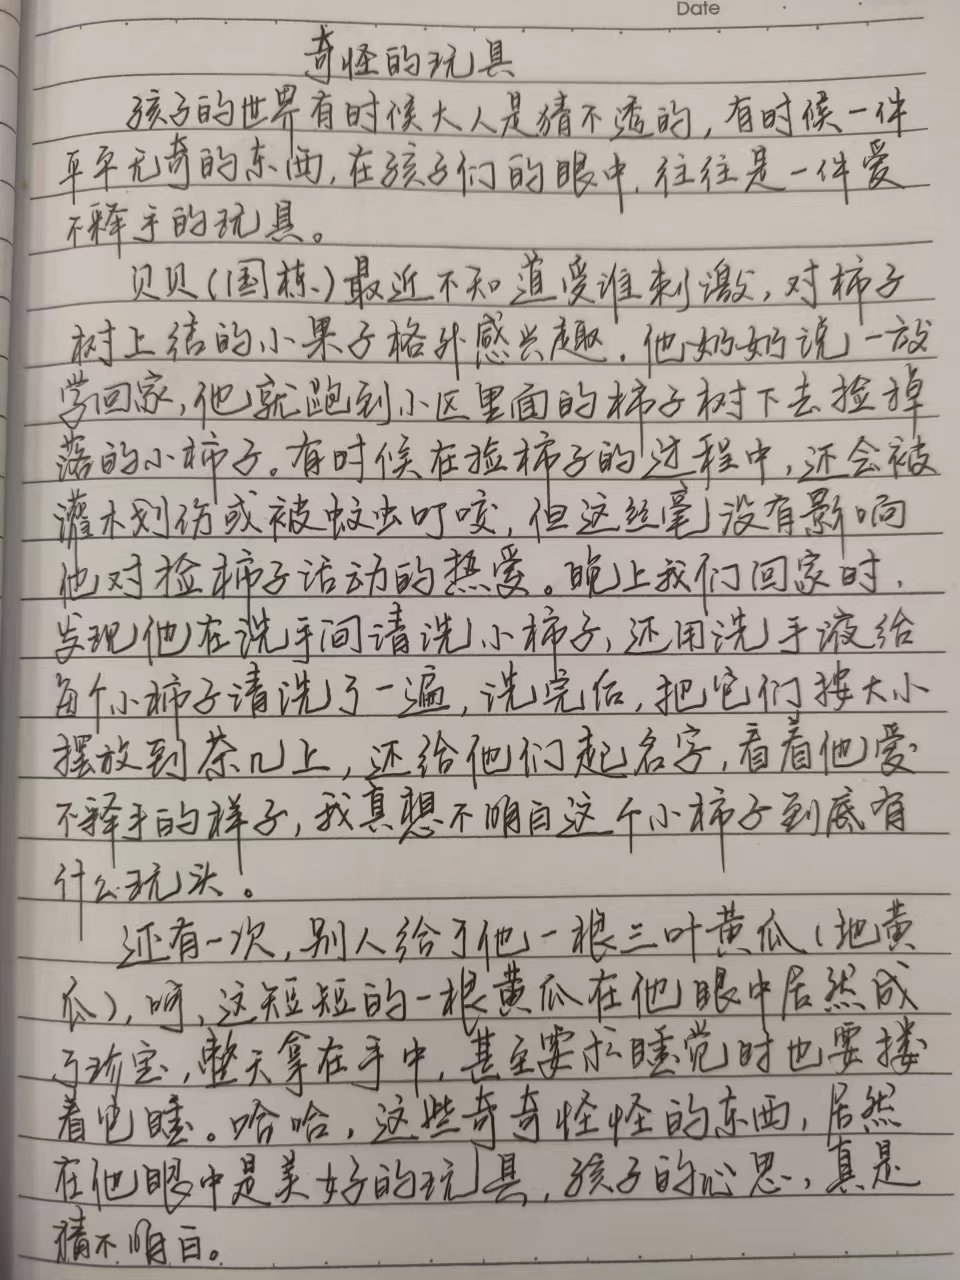 Date
奇怪的玩具
孩子的世界有时候大人是猜不透的，有时候一件
平平无奇的东西，在孩子们的眼中，往往是一件爱
不释手的玩具。
贝贝（国栋）最近不知道受谁刺激，对柿子
树上结的小果子格外感兴趣。他奶奶说一放
学回家，他就跑到小区里面的柿子树下去捡掉
落的小柿子。有时候在捡柿子的过程中，还会被
灌木划伤或被蚊虫叮咬，但这丝毫没有影响
他对捡柿子活动的热爱。晚上我们回家时，
发现他在洗手间请洗小柿子，还用洗手液给
每个小柿子请洗了一遍，洗完后，把它们按大小
摆放到茶几上，还给他们起名字，看着他爱
不释手的样子，我真想不明白这个小柿子到底有
什么玩头。
还有一次，别人给了他一根三叶黄瓜（地黄
瓜），呵，这短短的一根黄瓜在他眼中居然成
了珍宝，整天拿在手中，甚至要求睡觉时也要搂
着它睡。哈哈，这些奇奇怪怪的东西，居然
在他眼中是美好的玩具，孩子的心思，真是
猜不明白。